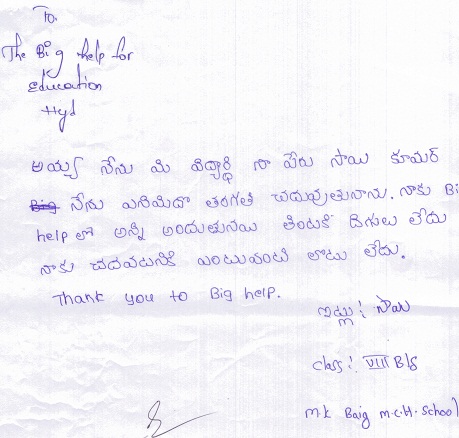 To.
The Big help for
education
Hyd
అయ్య నేను మి విద్యార్థి నా పేరు సాయి కూమర్
నేను ఎనిమిదొ తరగతి చదువుతునాను. నాకు Bi
help లో అన్ని అందుతునయి తింటకి దిగులు లేదు
నాకు చదవటనికి ఎంటువంటి లొటు లేదు.
Thank you to Big help.
ఇట్లు: సాయి
class: VIII B/S
M.K Baig M.C.H. School